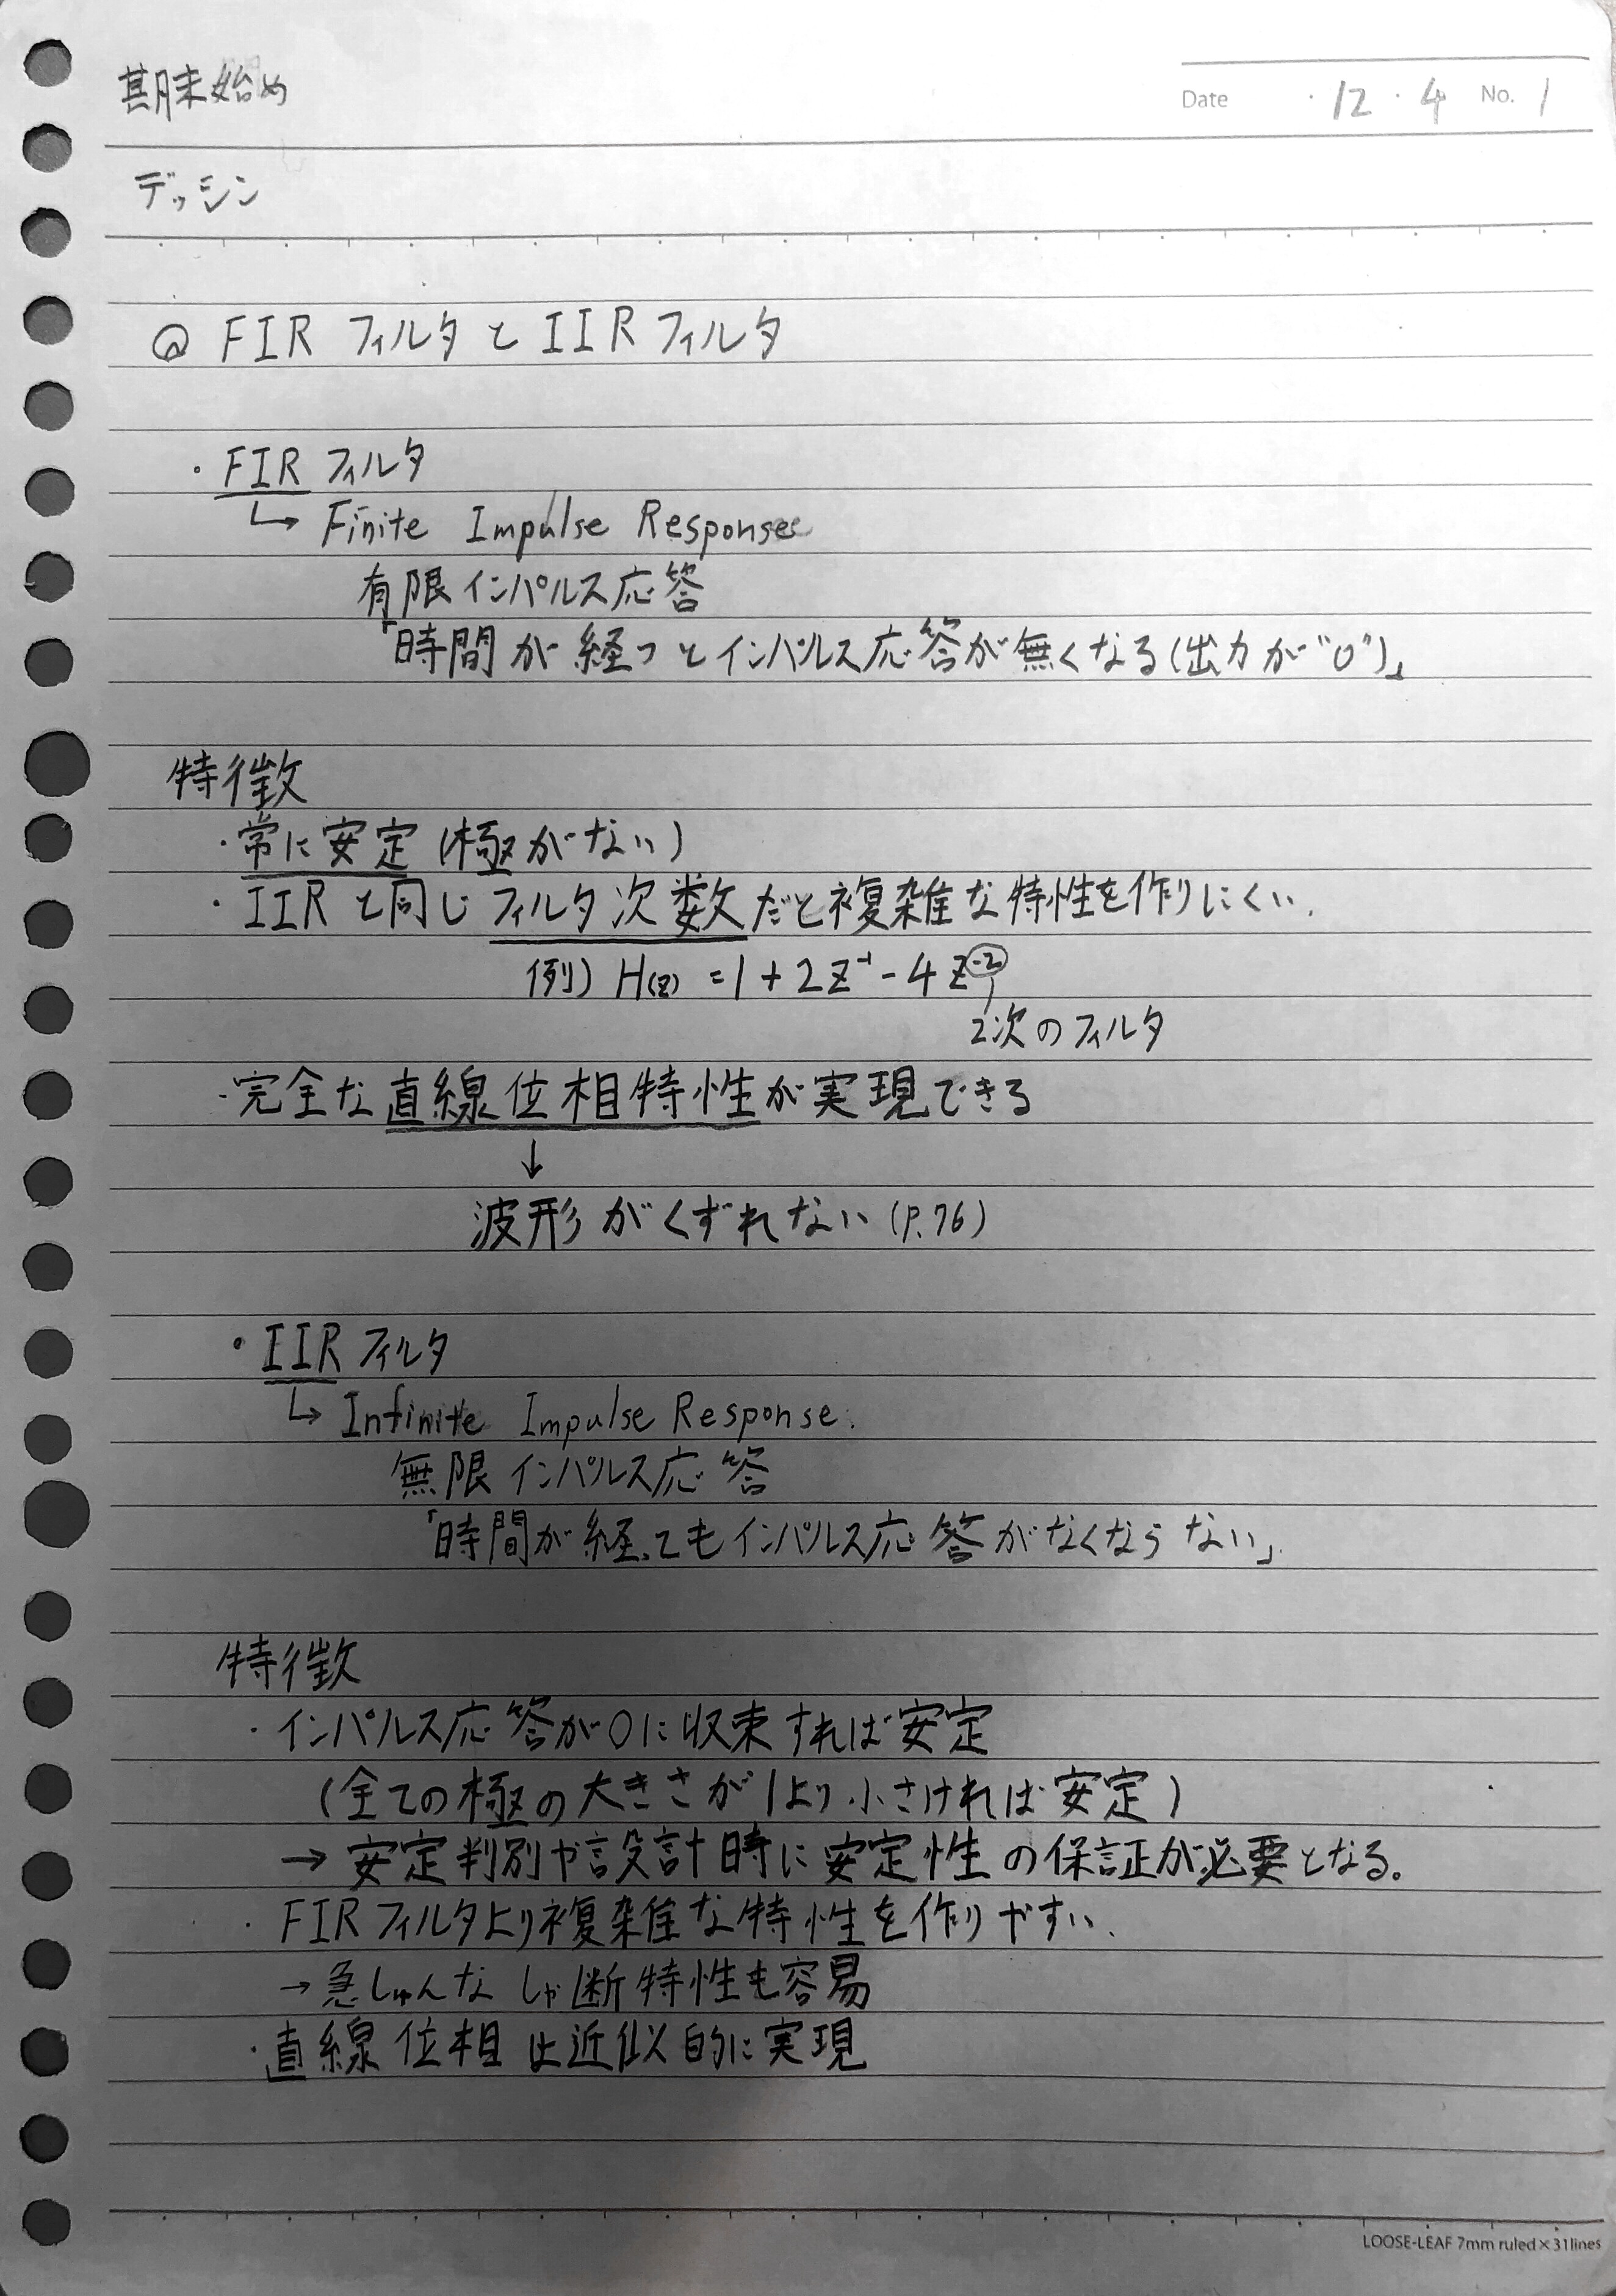 期末始め
Date ・12・4 No. 1
デッシン
◎ FIR フィルタと IIR フィルタ
・FIR フィルタ
↳ Finite Impulse Response
有限インパルス応答
「時間が経つとインパルス応答が無くなる(出力が"0")」
特徴
・常に安定(極がない)
・IIRと同じフィルタ次数だと複雑な特性を作りにくい.
例) H(z) = 1 + 2z⁻¹ - 4z⁻²
2次のフィルタ
・完全な直線位相特性が実現できる
↓
波形がくずれない(P.76)
・IIR フィルタ
↳ Infinite Impulse Response.
無限インパルス応答
「時間が経ってもインパルス応答がなくならない」
特徴
・インパルス応答が0に収束すれば安定
(全ての極の大きさが1より小さければ安定)
→ 安定判別や設計時に安定性の保証が必要となる。
・FIRフィルタより複雑な特性を作りやすい.
→急しゅんなしゃ断特性も容易
・直線位相は近似的に実現
LOOSE-LEAF 7mm ruled×31lines